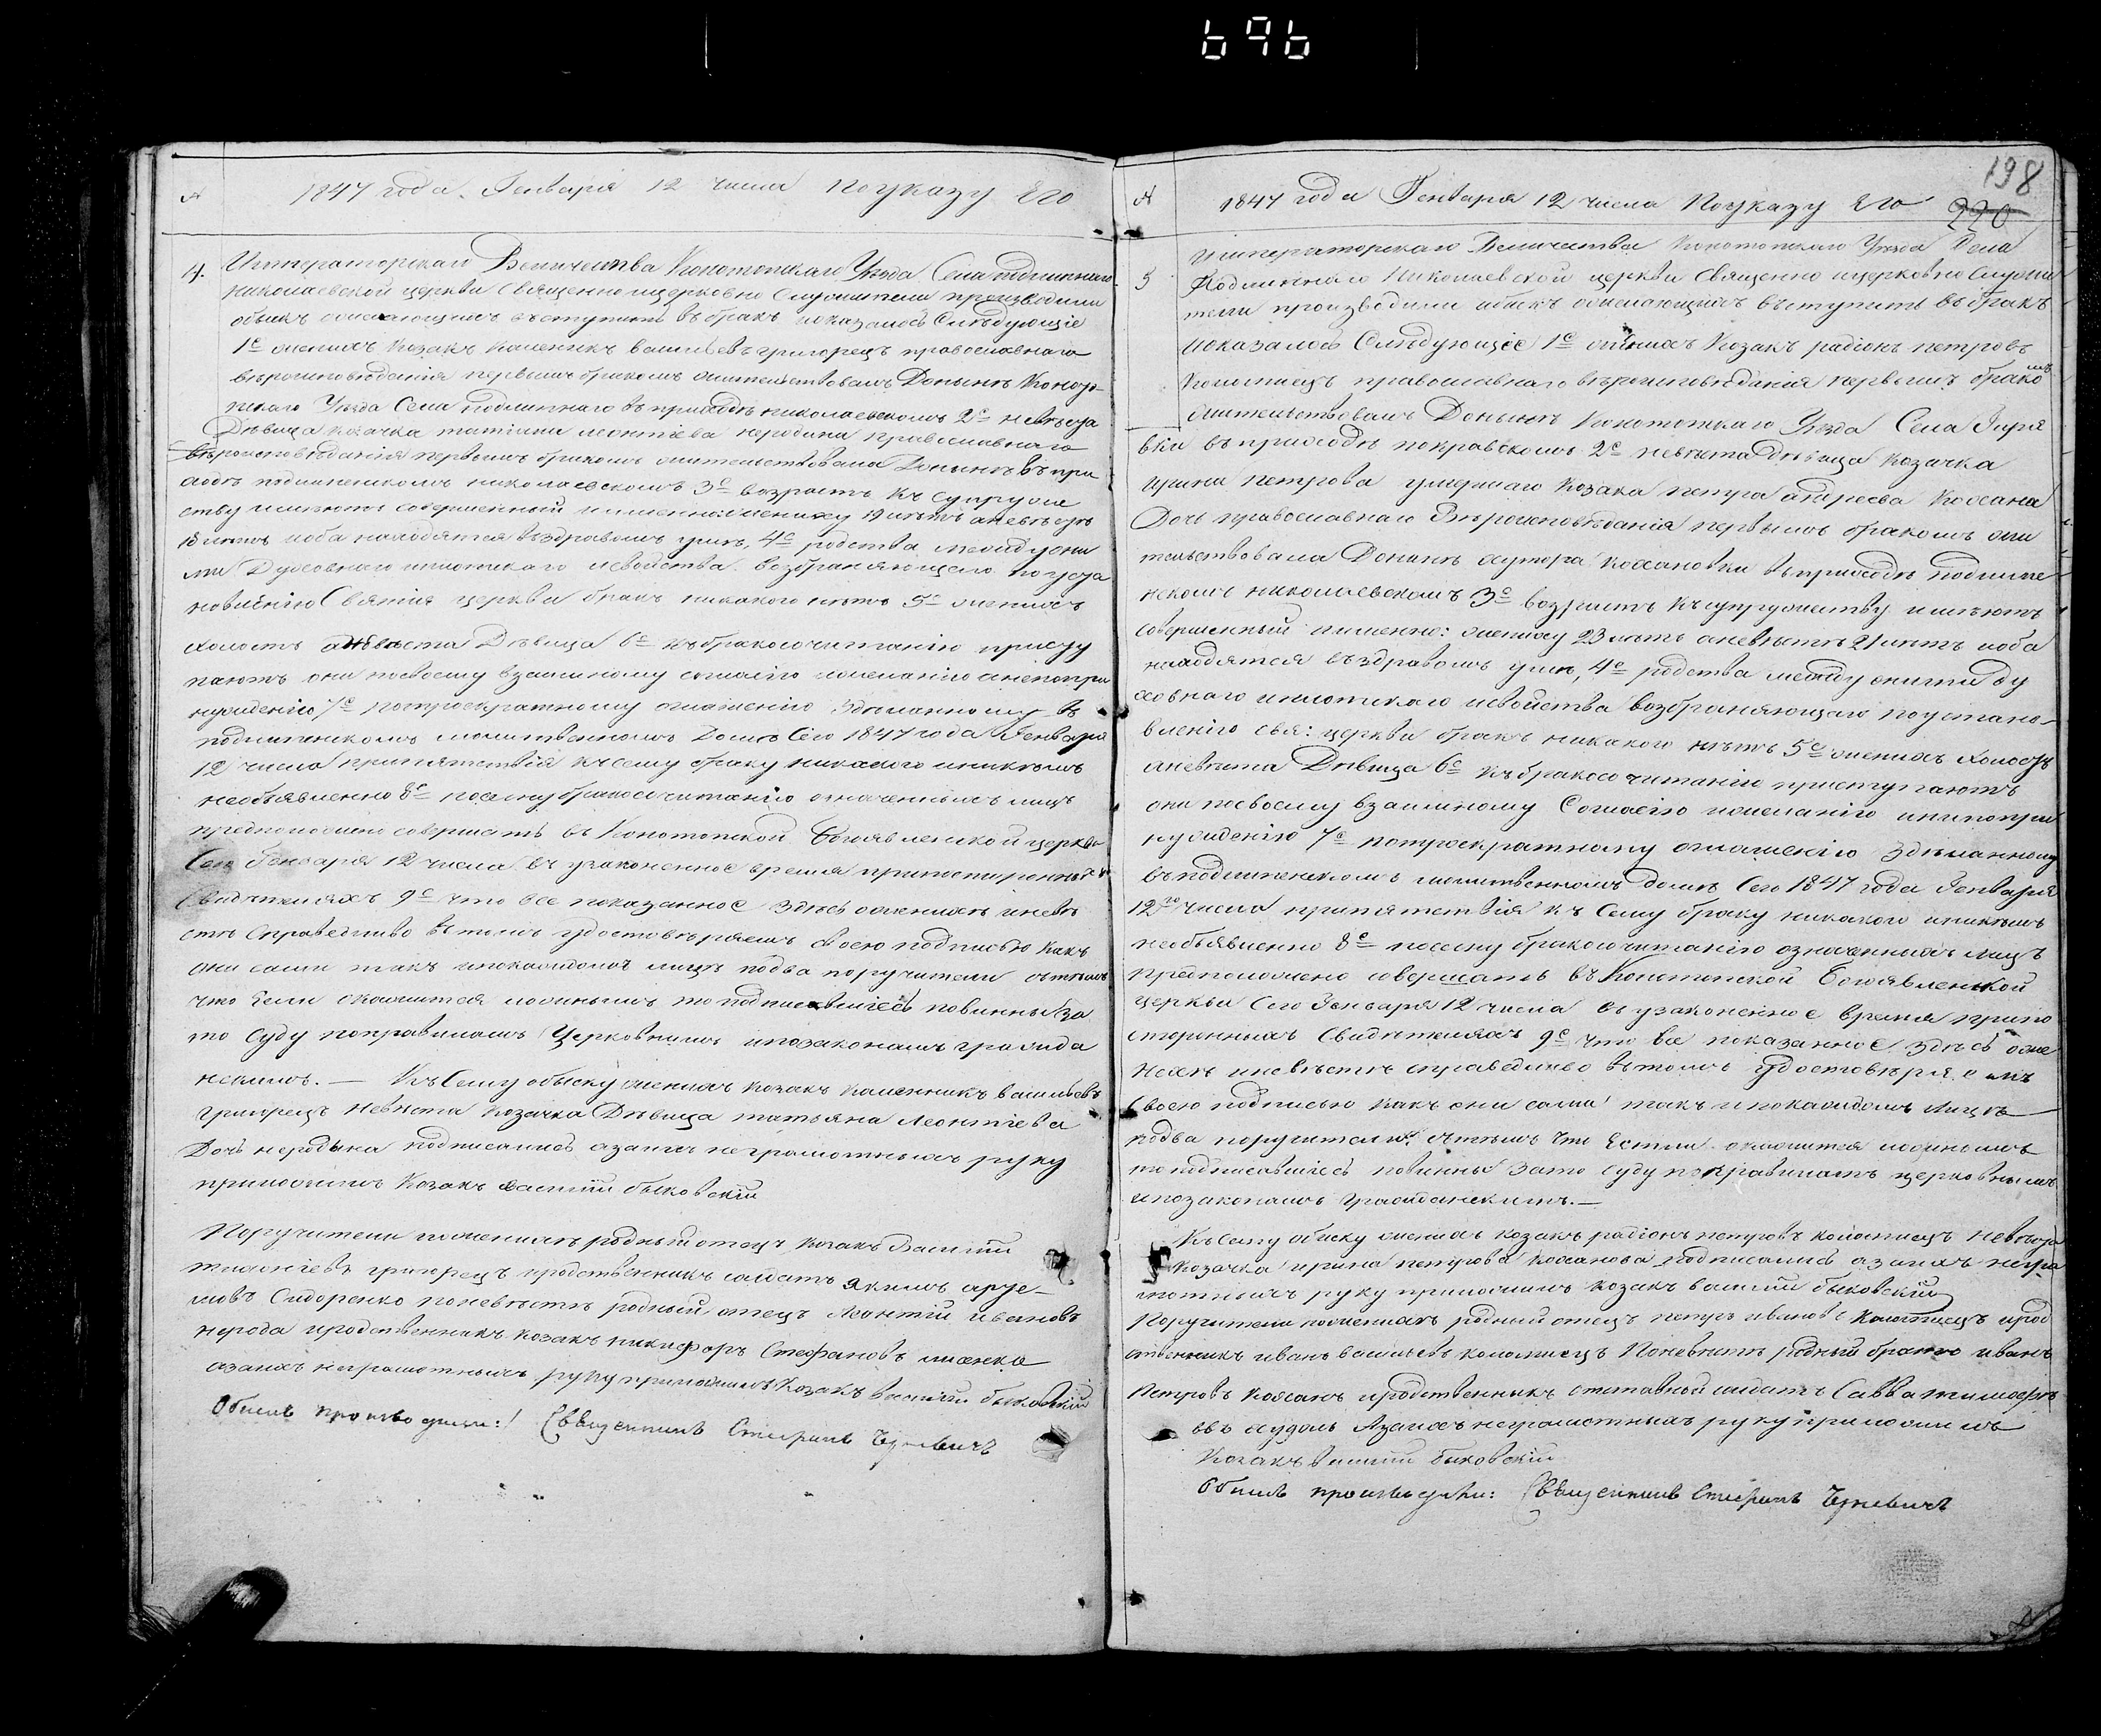 696
1847 года. Генваря 12 числа По указу Его
4. Императорскаго Величества Конотопскаго Уезда Села подлипнаго
николаевской церкви Священно ицерковно Служители производили
обыскъ ожелающихъ въступить въ бракъ иоказалось Слѣдующіе
1е женихъ Козакъ Каленикъ васильевъ григорецъ православнаго
вѣроисповѣданія первымъ бракомъ жительствовалъ Донынѣ Коното-
пскаго Уезда Села подлипнаго въ приходѣ николаевскомъ 2е невѣста
Дѣвица козачка татіяна леонтіева неродина православнаго
вѣроисповѣданія первымъ бракомъ жительствовала Донынѣ въ при
ходѣ подлипенскомъ николаевскомъ 3е возрастъ къ супруже
ству имѣютъ совершенный иименно: жениху 19 лѣтъ аневѣстѣ
18 лѣтъ иоба находятся въздравомъ умѣ, 4е родства между они
ми Духовнаго иплотскаго исвойства возбраняющаго поуста
новлѣнію Святія церкви бракъ никакого нѣтъ 5е женихъ
холостъ аневѣста Дѣвица 6е къ бракосочитанію присту
паютъ они посвоему взаимному согласію ижеланію анепопри
нужденію 7е потроекратному оглашенію зделанному въ
подлипенскомъ молитвенномъ Домѣ Сего 1847 года Генваря
12 числа припятствія къ сему браку никакого иникѣмъ
необъявленно 8е посему бракосочитанію означенныхъ лицъ
предположено совершить въ Конотопской Богоявленской церкви
Сего Генваря 12 числа въ узаконенное время припостороннихъ
Свидѣтеляхъ 9е что все показанное здѣсь ожениха иневѣ
стѣ справедливо въ томъ удостовѣряемъ своею подписью какъ
они сами такъ ипокаждомъ лицѣ подва поручители сътѣмъ
что Если окажится ложнымъ то подписавшіесь повинны за
то суду поправиламъ Церковнымъ ипозаконамъ гражда
нскимъ. — Къ Сему обыску женихъ козакъ каленникъ васильевъ
григорецъ Невѣста козачка Дѣвица татьяна Леонтіева
Дочь неродына подписались азанихъ неграмотныхъ руку
приложилъ Козакъ василій быковскій
Поручители поженихѣ родный отецъ козакъ Василий
григорецъ иродственникъ солдатъ якимъ
Сидоренко поневѣстѣ родный отецъ Леонтій ивановъ
нерода иродственникъ козакъ никифоръ Стефановъ
азанихъ неграмотныхъ руку приложилъ Козакъ василій быковскій
Обыскъ производили: Священникъ Стефанъ
198
220
1847 года Генваря 12 числа По указу Его
5 Императорскаго Величества Конотопскаго Уезда Села
Подлипнаго Николаевской церкви Священно ицерковно Служи
тели производили обыскъ ожелающихъ въступить въ бракъ
иоказалось Слѣдующіе 1е женихъ Козакъ радіонъ петровъ
Коломіецъ православнаго вѣроисповѣданія первымъ бракомъ
жительствовалъ Донынѣ Конотопскаго Уезда Села Гиря
вки въ приходѣ покравскомъ 2е невѣста Дѣвица козачка
ирина петрова умершаго козака петра андреева Кохана
Дочь православнаго Вѣроисповѣданія первымъ бракомъ жи
тельствовала Донынѣ хутора кохановки въ приходѣ подлипе
нскомъ николаевскомъ 3е возрастъ къ супружеству имѣютъ
совершенный иименно: жениху 23 лѣтъ аневѣстѣ 21 лѣтъ иоба
находятся въздравомъ умѣ, 4е родства между оними ду
ховнаго иплотскаго исвойства возбраняющаго поустано-
вленію свя: церкви бракъ никакого нѣтъ 5е женихъ холостъ
аневѣста Дѣвица 6е къ бракосочитанію приступаютъ
они посвоему взаимному Согласію ижеланію инепопри
нужденію 7е потроекратному оглашенію зделанному
въ подлипенскомъ молитвенномъ домѣ Сего 1847 года Генваря
12го числа припятствія къ Сему браку никакого иникѣмъ
необъявленно 8е посему бракосочитанію означенныхъ лицъ
предположено совершать въ Конотопской Богоявленской
церкви Сего Генваря 12 числа въ узаконенное время припо
стороннихъ Свидѣтеляхъ 9е что все показанное здѣсь оже
нихѣ иневѣстѣ справедливо въ томъ удостовѣряемъ
Своею подписью какъ они сами такъ ипокаждомъ лицѣ
подва поручители сътѣмъ что Естли окажится ложнымъ
то подписавшіесь повинны зато суду поправиламъ церковнымъ
ипозаконамъ гражданскимъ. —
Къ Сему обыску женихъ козакъ радіонъ петровъ коломіецъ невѣста
козачка ирина петрова коханова подписались азанихъ негра
мотныхъ руку приложилъ козакъ василій быковскій
Поручители поженихѣ родный отецъ петръ ивановъ коломіецъ ирод
ственникъ иванъ васильевъ коломіецъ Поневѣстѣ родный братъ иванъ
Петровъ Коханъ иродственникъ отставной солдатъ Савва тимофѣе
въ худоль Азанихъ неграмотныхъ руку приложилъ
Козакъ василій быковскій
Обыскъ производили: Священникъ Стефанъ